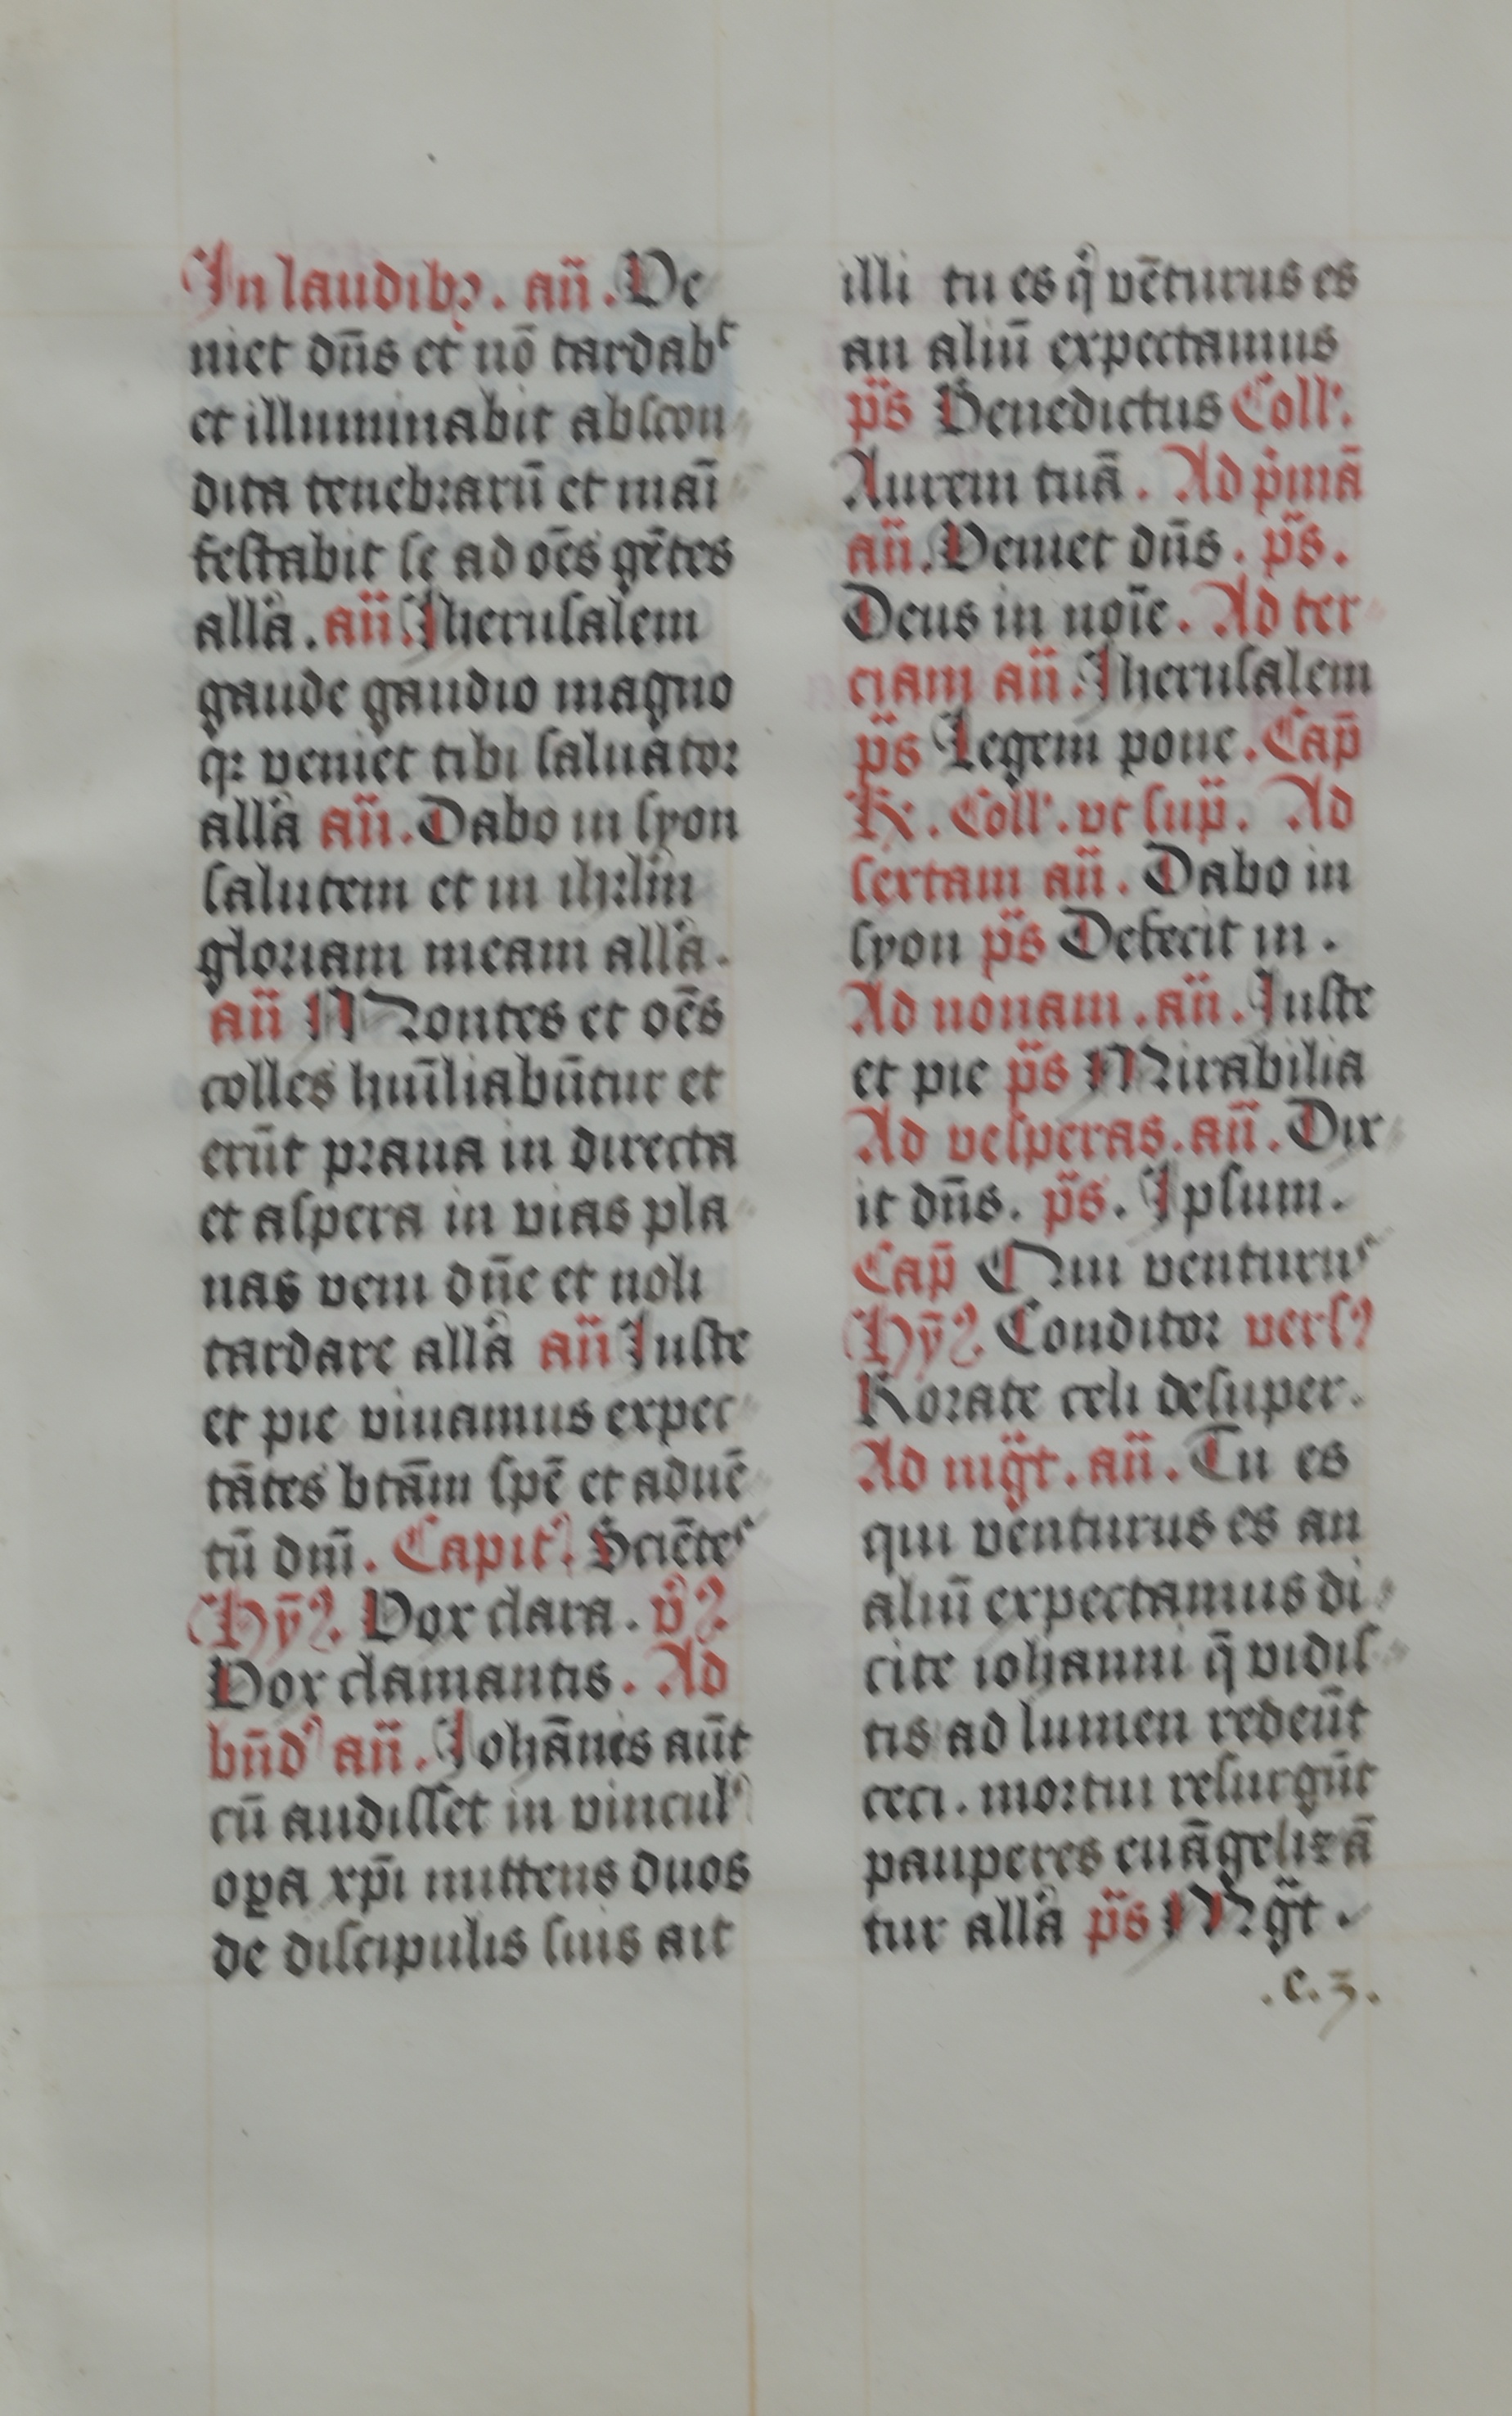 In laudibꝫ. an̄. Ve
niet dn̄s et nō tardabᵗ
et illuminabit abſcon
dita tenebꝛarū et maī
feſtabit ſe ad oēs gētes
all'a. an̄. Iheruſalem
gaude gaudio magno
qꝛ veniet tibi ſaluatoꝛ
all'a an̄. Dabo in ſyon
ſalutem et in ihꝛlm̄
gloꝛiam meam all'a.
an̄ Montes et oēs
colles hūiliabūtur et
erūt pꝛaua in directa
et aſpera in vias pla
nas veni dn̄e et noli
tardare all'a an̄ Iuſte
et pie viuamus expec
tātes btām ſpē et aduē
tū dnī. Capitˡ. Sciētes
Hȳꝰ. Vox clara. v̄ꝰ
Vox clamantis. Ad
bn̄dˡ an̄. Iohānes aūt
cū audiſſet in vincul'
oꝑa xp̄i mittens duos
de diſcipulis ſuis ait
illi tu es qⁱ vēturus es
an aliū expectamus
ps̄ Benedictus Coll'.
Aurem tuā. Ad pⁱmā
an̄. Veniet dn̄s. ps̄.
Deus in noīe. Ad ter
ciam an̄. Iheruſalem
ps̄ Legem pone. Cap̄
R. Coll'. vt ſup̄. Ad
ſextam an̄. Dabo in
ſyon ps̄ Defecit in.
Ad nonam. an̄. Iuſte
et pie ps̄ Mirabilia
Ad veſperas. an̄. Dix
it dn̄s. ps̄. Ipſum.
Cap̄ Qui venturus
Hȳꝰ Conditoꝛ verſꝰ
Roꝛate celi deſuper.
Ad mḡt. an̄. Tu es
qui venturus es an
aliū expectamus di
cite iohanni q̄ vidiſ
tis ad lumen redeūt
ceci. moꝛtui reſurgūt
pauperes euāgelizā
tur all'a ps̄ Mḡt.
.c.3.